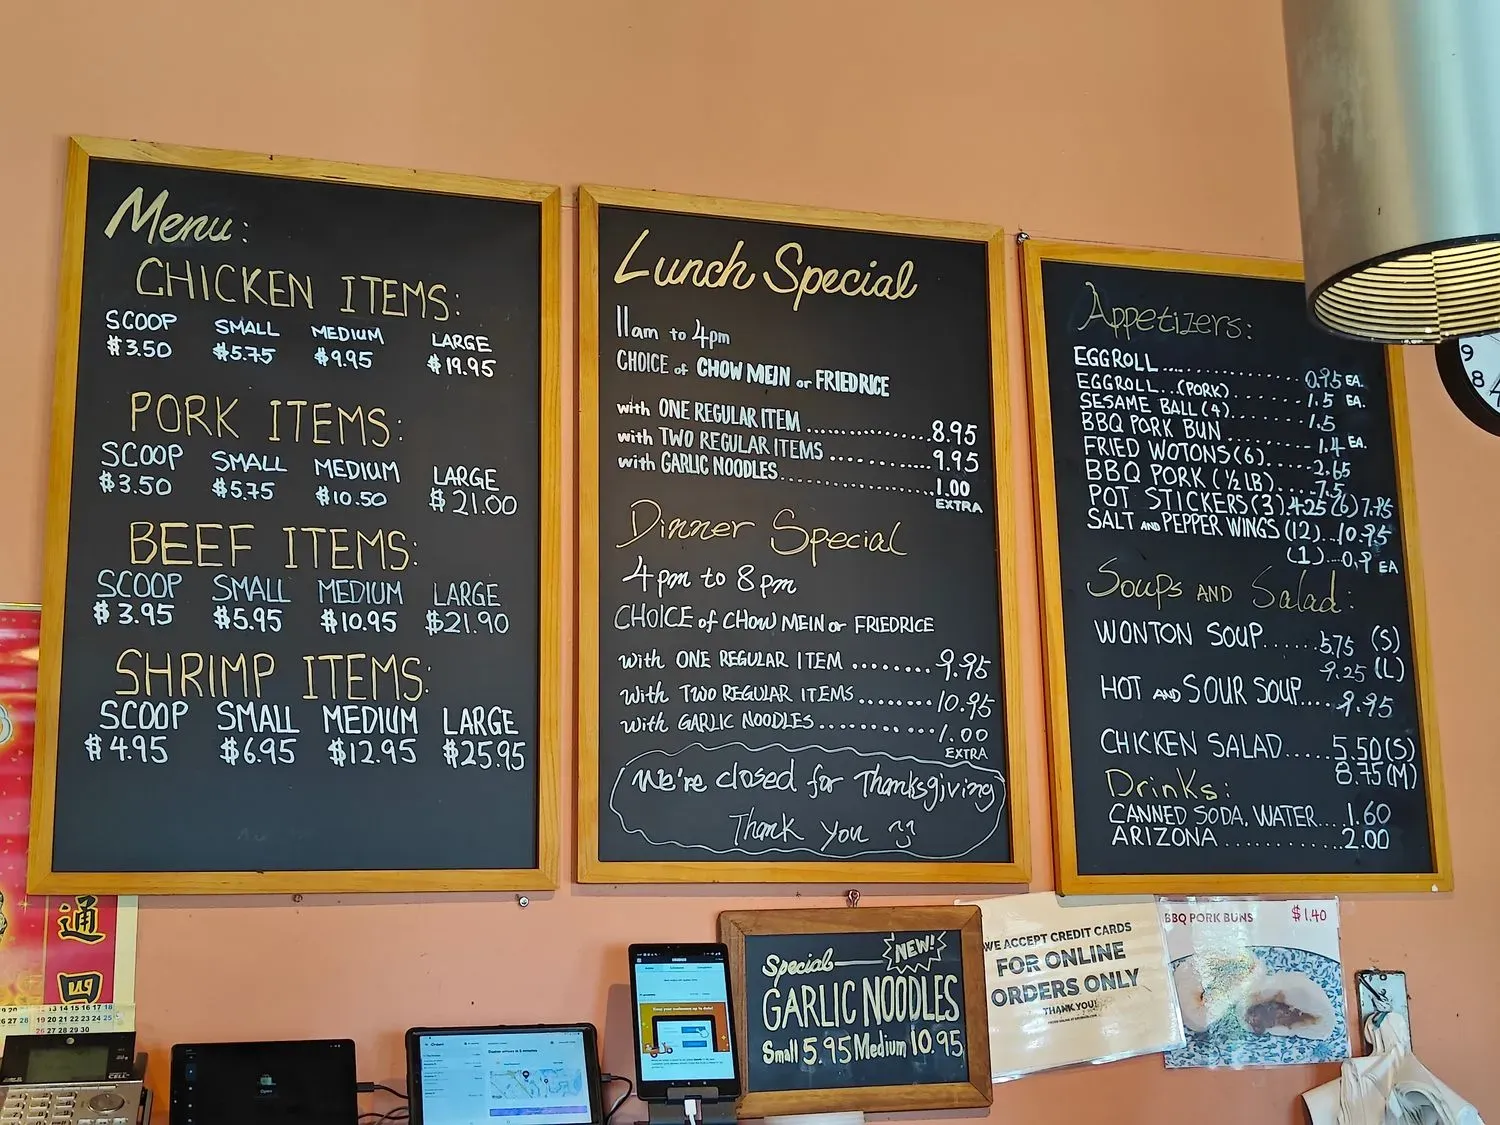 Menu:
CHICKEN ITEMS:
SCOOP SMALL MEDIUM LARGE
$3.50 $5.75 $9.95 $19.95
PORK ITEMS:
SCOOP SMALL MEDIUM LARGE
$3.50 $5.75 $10.50 $21.00
BEEF ITEMS:
SCOOP SMALL MEDIUM LARGE
$3.95 $5.95 $10.95 $21.90
SHRIMP ITEMS:
SCOOP SMALL MEDIUM LARGE
$4.95 $6.95 $12.95 $25.95
Lunch Special
11am to 4pm
CHOICE of CHOW MEIN or FRIEDRICE
with ONE REGULAR ITEM ............... 8.95
with TWO REGULAR ITEMS ............ 9.95
with GARLIC NOODLES .................. 1.00
EXTRA
Dinner Special
4pm to 8pm
CHOICE of CHOW MEIN or FRIEDRICE
with ONE REGULAR ITEM ........ 9.95
with TWO REGULAR ITEMS ........ 10.95
with GARLIC NOODLES ............ 1.00
EXTRA
We're closed for Thanksgiving
Thank you
Appetizers:
EGGROLL .................. 0.95 EA.
EGGROLL...(PORK) .......... 1.5 EA.
SESAME BALL (4) .......... 1.5
BBQ PORK BUN .......... 1.4 EA.
FRIED WOTONS (6) ...... 2.65
BBQ PORK (½ LB) .... 7.5
POT STICKERS (3) 4.25 (6) 7.95
SALT AND PEPPER WINGS (12)...10.95
(1) .... 0.9 EA
Soups AND Salad:
WONTON SOUP...... 5.75 (S)
9.25 (L)
HOT AND SOUR SOUP.... 9.95
CHICKEN SALAD..... 5.50 (S)
8.75 (M)
Drinks:
CANNED SODA, WATER.... 1.60
ARIZONA ............. 2.00
Special NEW!
GARLIC NOODLES
Small 5.95 Medium 10.95
WE ACCEPT CREDIT CARDS
FOR ONLINE
ORDERS ONLY
THANK YOU!
BBQ PORK BUNS $1.40
通
四